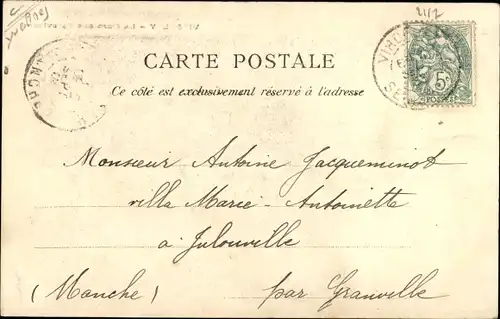 21/2
CARTE POSTALE
Ce côté est exclusivement réservé à l'adresse
5c
Monsieur Antoine Jacqueminot
villa Marie-Antoinette
à Julouville
(Manche) par Granville